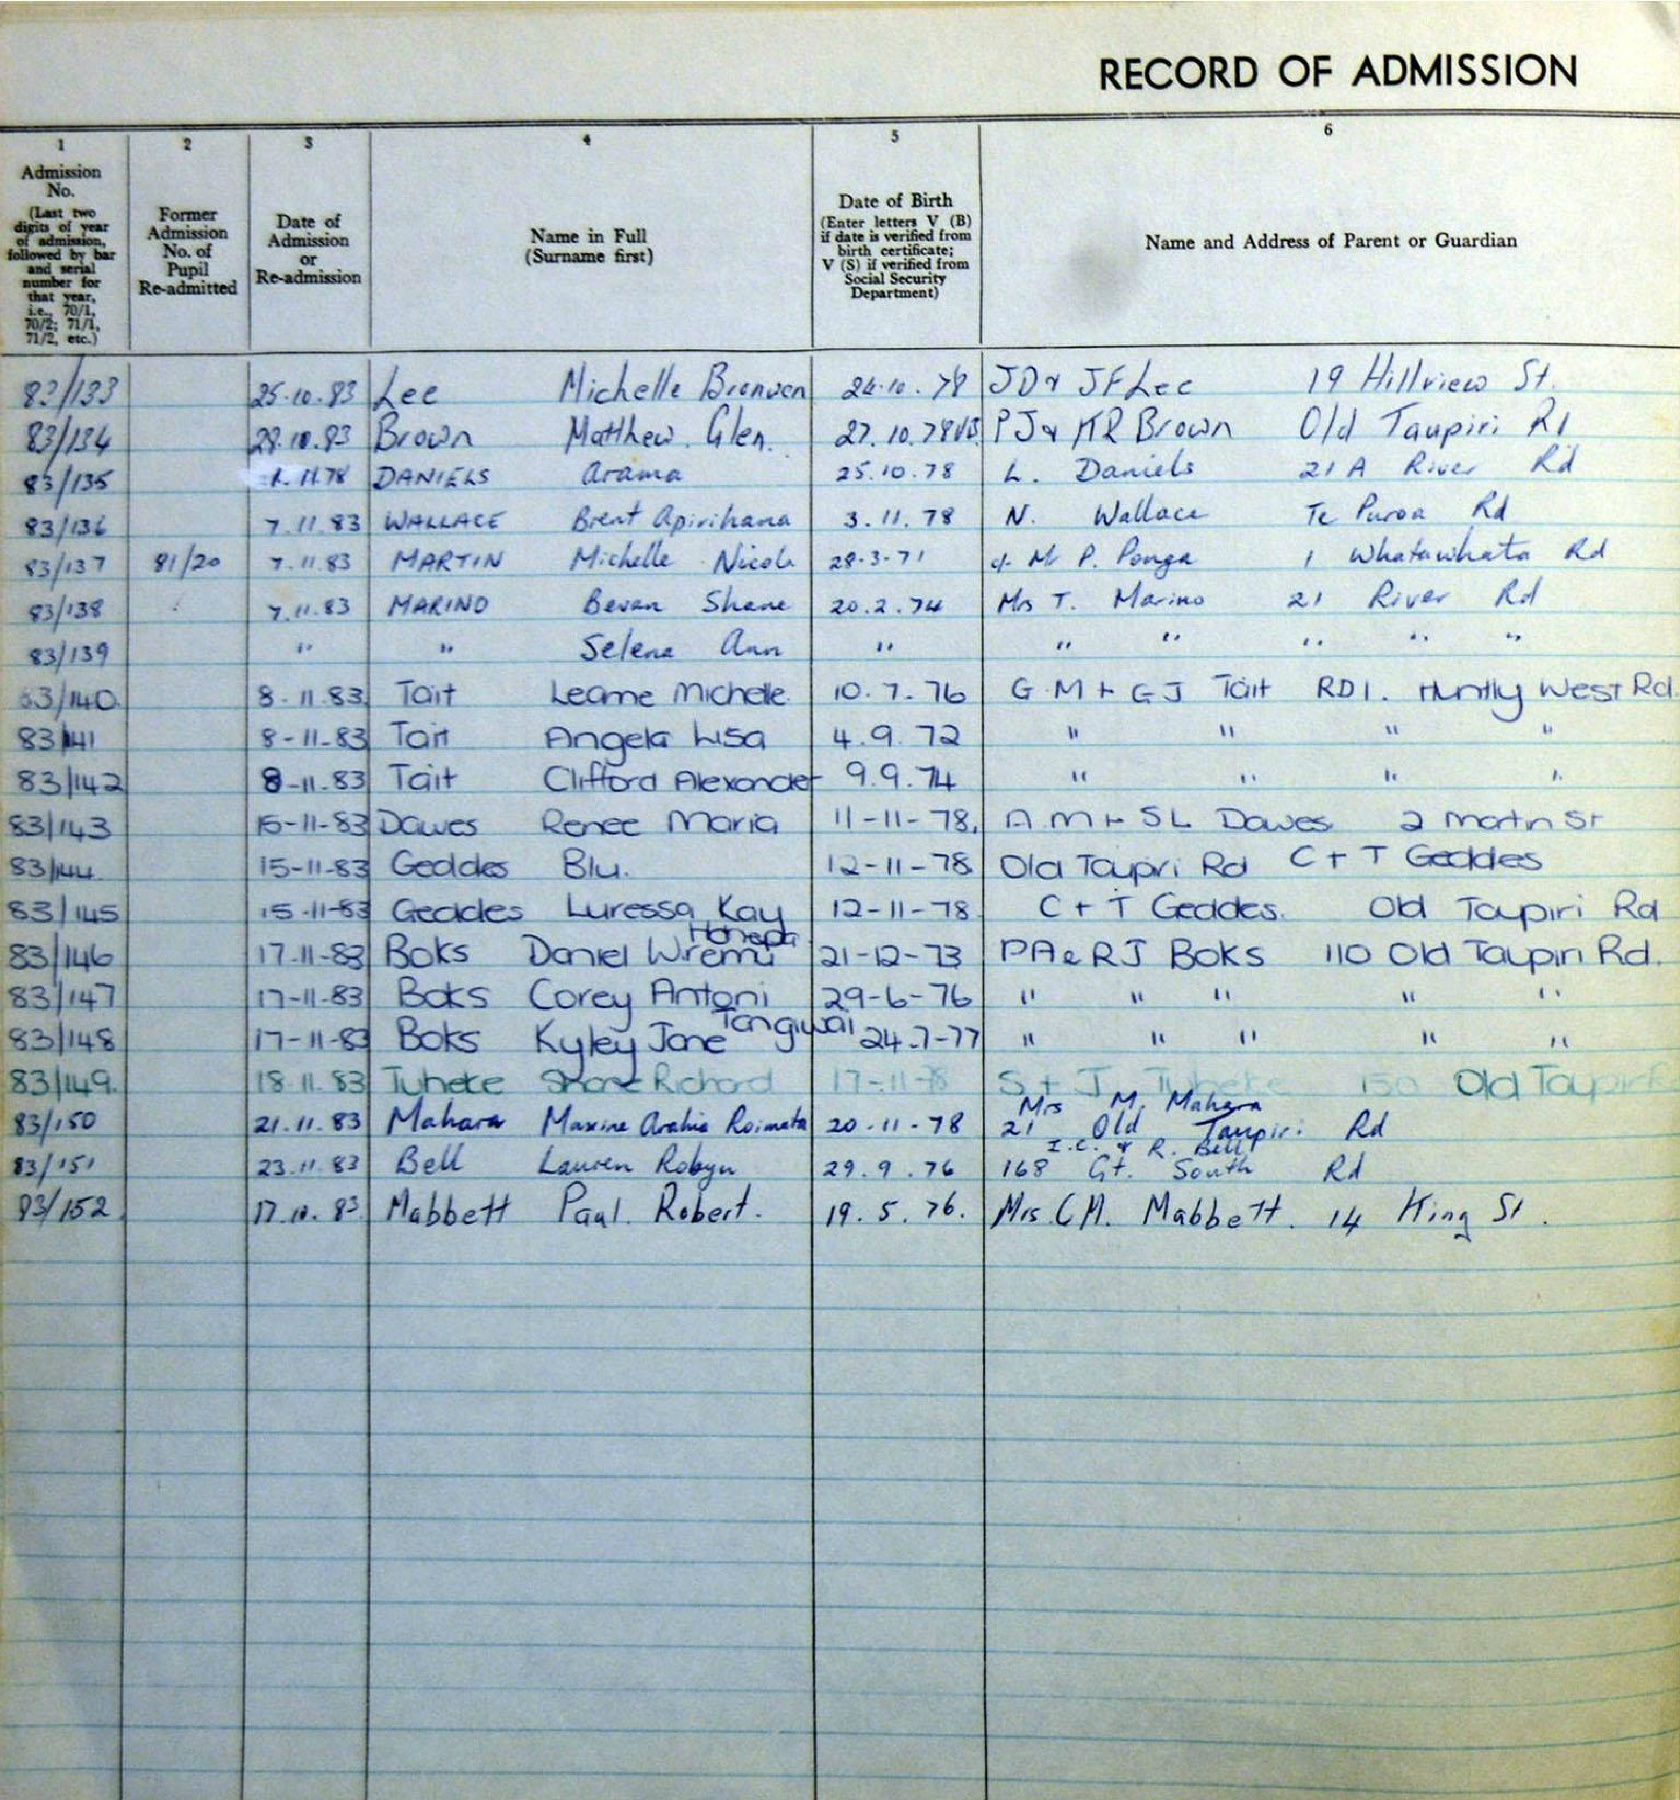 RECORD OF ADMISSION
1 2 3 4 5 6
Admission No. (Last two digits of year of admission, followed by bar and serial number for that year, i.e., 70/1, 70/2; 71/1, 71/2, etc.)
Former Admission No. of Pupil Re-admitted
Date of Admission or Re-admission
Name in Full (Surname first)
Date of Birth (Enter letters V (B) if date is verified from birth certificate; V (S) if verified from Social Security Department)
Name and Address of Parent or Guardian
83/133 25.10.83 Lee Michelle Bronwen 24.10.78 JD & JF Lee 19 Hillview St.
83/134 28.10.83 Brown Matthew Glen. 27.10.78 PJ & KR Brown Old Taupiri Rd
83/135 1.11.78 DANIELS Arama 25.10.78 L. Daniels 21A River Rd
83/136 7.11.83 WALLACE Brent Apirihana 3.11.78 N. Wallace Te Puroa Rd
83/137 81/20 7.11.83 MARTIN Michelle Nicola 28-3-71 c/- Mr P. Ponga 1 Whatawhata Rd
83/138 7.11.83 MARINO Bevan Shane 20.2.74 Mrs T. Marino 21 River Rd
83/139 " " Selena Ann " " " " " "
83/140 8-11.83 Tait Leanne Michelle 10.7.76 G M + G J Tait RD1. Huntly West Rd.
83/141 8-11-83 Tait Angela Lisa 4.9.72 " " " "
83/142 8-11.83 Tait Clifford Alexander 9.9.74 " " " "
83/143 15-11-83 Dawes Renee Maria 11-11-78. A.M + S L Dawes 2 Martin St
83/144 15-11-83 Geddes Blu. 12-11-78 Old Taupiri Rd C + T Geddes
83/145 15-11-83 Geddes Luressa Kay 12-11-78 C + T Geddes. Old Taupiri Rd
83/146 17-11-83 Boks Daniel Wiremu Hohepa 21-12-73 PA & RJ Boks 110 Old Taupiri Rd.
83/147 17-11-83 Boks Corey Antoni 29-6-76 " " " " "
83/148 17-11-83 Boks Kyley Jane Tangiwai 24-7-77 " " " " "
83/149. 18.11.83 Tuheke Shane Richard 17-11-78 S + J Tuheke 150 Old Taupiri
83/150 21.11.83 Mahara Maxine Arahia Roimata 20-11-78 Mrs M. Mahara
21 Old Taupiri Rd
83/151 23.11.83 Bell Lauren Robyn 29.9.76 I.C. & R. Bell
168 Gt. South Rd
83/152 17.10.83 Mabbett Paul Robert. 19.5.76. Mrs C M. Mabbett. 14 King St.